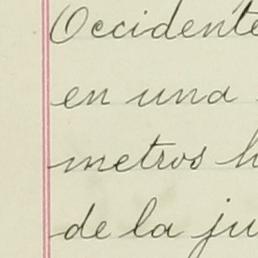 Occidente
en una
metros h
de la ju